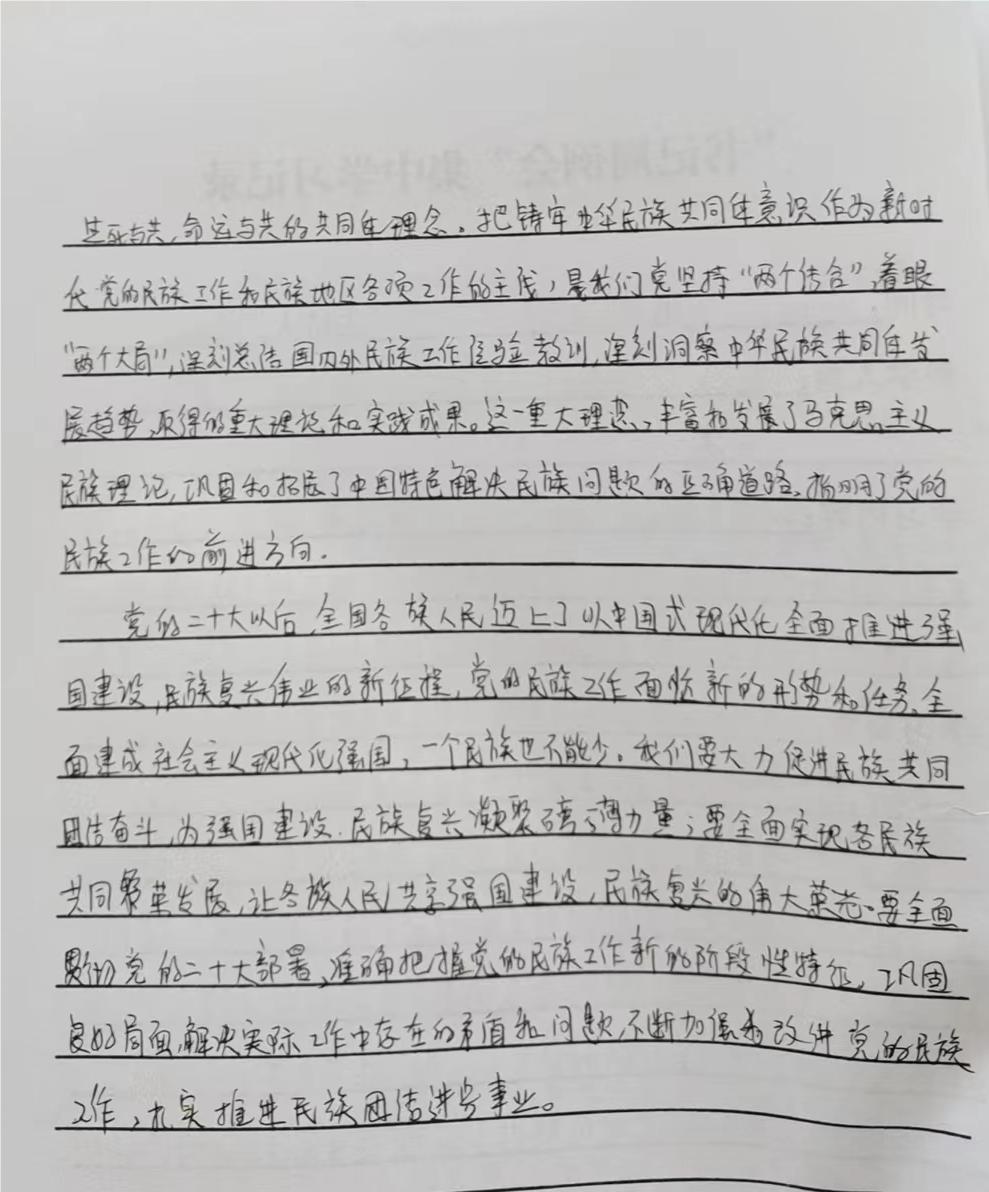 "书记周例会"集中学习记录
生死与共,命运与共的共同体理念。把铸牢中华民族共同体意识作为新时
代党的民族工作和民族地区各项工作的主线,是我们党坚持"两个结合",着眼
"两个大局",深刻总结国内外民族工作经验教训,深刻洞察中华民族共同体发
展趋势,取得的重大理论和实践成果。这一重大理念,丰富和发展了马克思主义
民族理论,巩固和拓展了中国特色解决民族问题的正确道路,指明了党的
民族工作的前进方向.
党的二十大以后,全国各族人民迈上了以中国式现代化全面推进强
国建设,民族复兴伟业的新征程,党的民族工作面临新的形势和任务,全
面建成社会主义现代化强国,一个民族也不能少。我们要大力促进民族共同
团结奋斗,为强国建设.民族复兴凝聚磅礴力量;要全面实现各民族
共同繁荣发展,让各族人民共享强国建设,民族复兴的伟大荣光.要全面
贯彻党的二十大部署,准确把握党的民族工作新的阶段性特征,巩固
良好局面,解决实际工作中存在的矛盾和问题,不断加强和改进党的民族
工作,扎实推进民族团结进步事业。